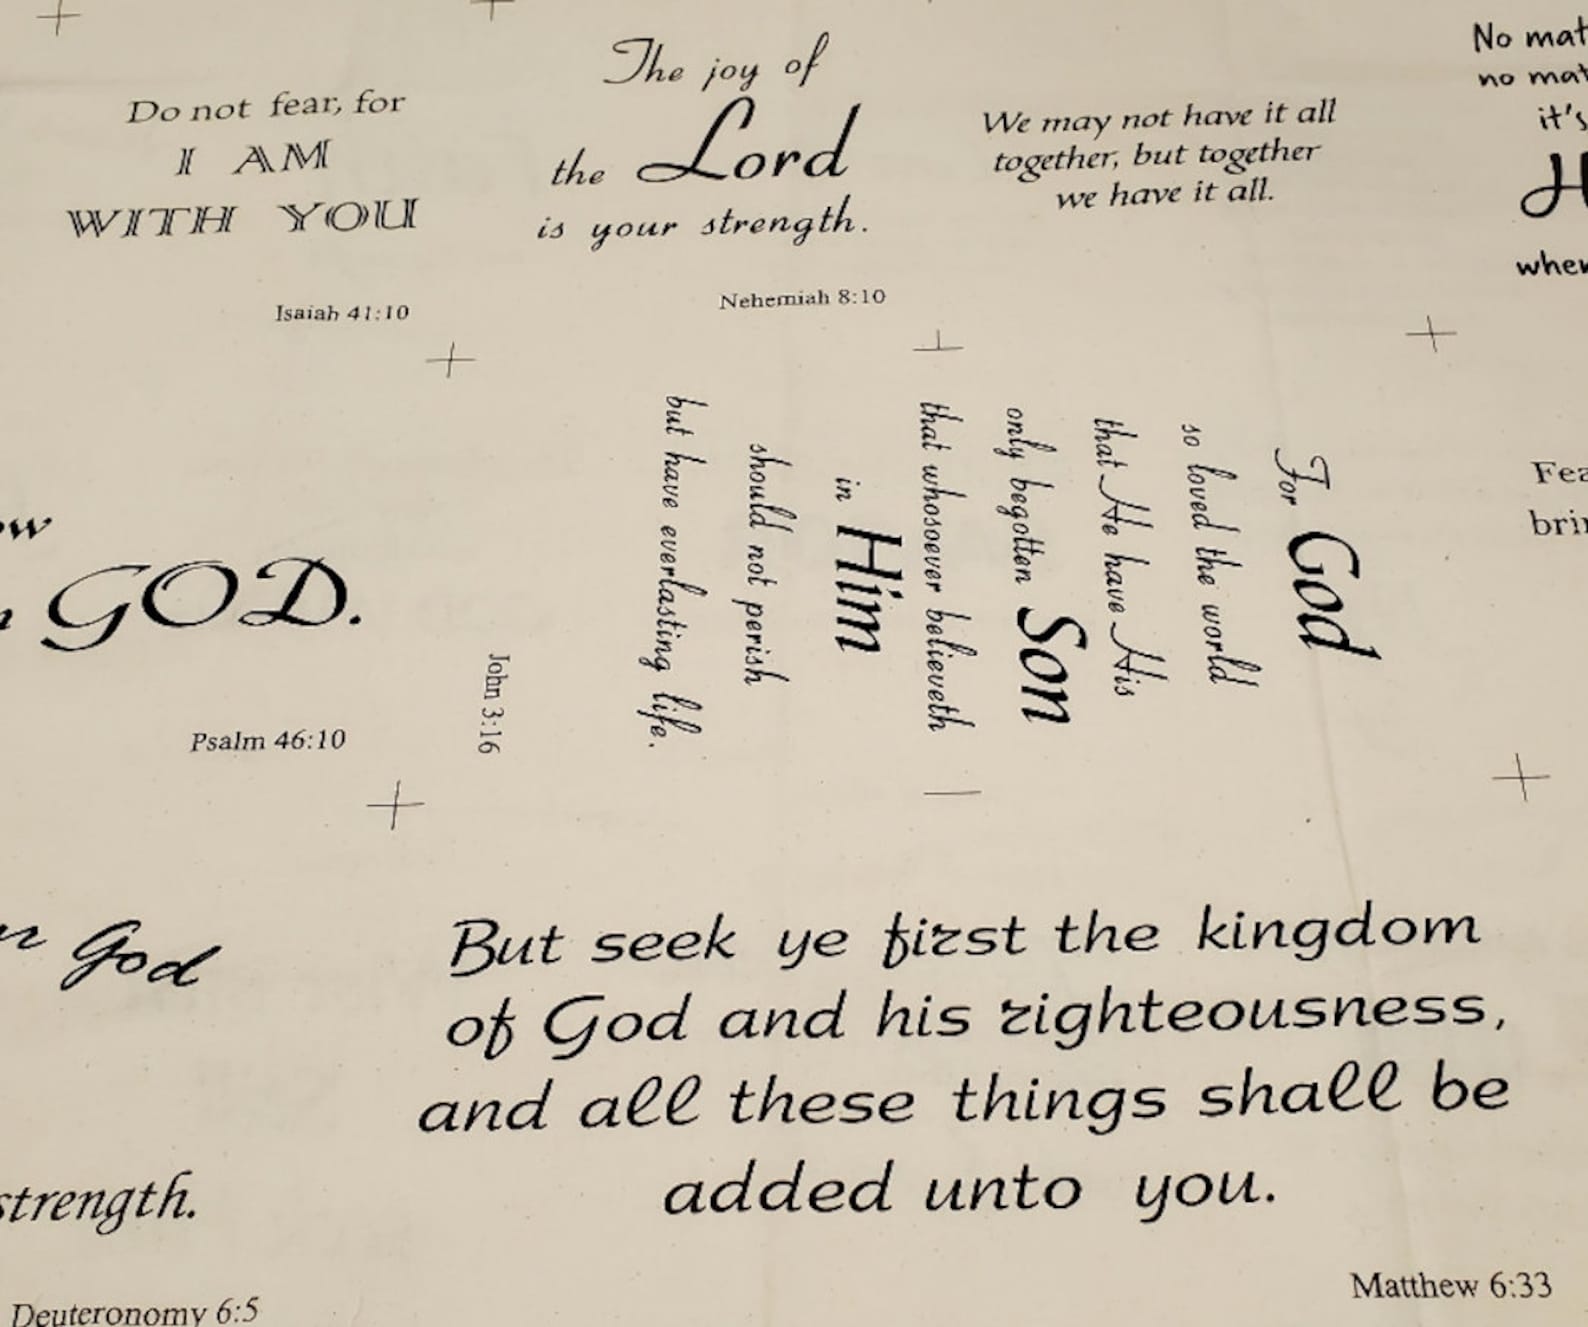 Do not fear, for
I AM
WITH YOU
Isaiah 41:10
The joy of
the Lord
is your strength.
Nehemiah 8:10
We may not have it all
together, but together
we have it all.
No mat
no mat
it's
H
when
ow
GOD.
Psalm 46:10
For God
so loved the world
that He have His
only begotten Son
that whosoever believeth
in Him
should not perish
but have everlasting life.
John 3:16
Fea
brin
God
strength.
Deuteronomy 6:5
But seek ye first the kingdom
of God and his righteousness,
and all these things shall be
added unto you.
Matthew 6:33